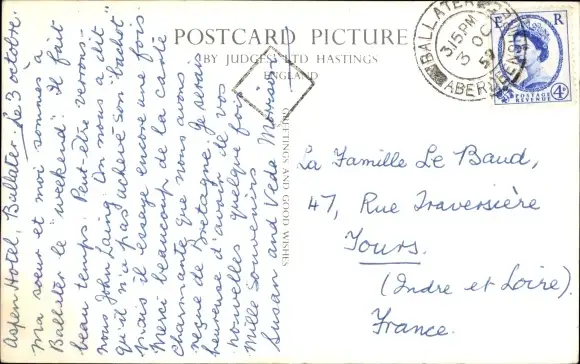 Aspen Hotel, Ballater. Le 3 octobre.
Ma soeur et moi sommes à
Ballater le "weekend". Il fait
beau temps. Peut-être verrons-
nous John Laing. On nous dit
qu'il n'a pas achevé son "bachot"
mais il essaye encore une fois.
Merci beaucoup de la carte
charmante que nous avons
reçue de Bretagne. Je serais
heureuse d'avoir de vos
nouvelles quelque fois
Mille Souvenirs
Susan and Veda
POSTCARD PICTURE
BY JUDGES LTD HASTINGS
ENGLAND
GREETINGS AND GOOD WISHES
BALLATER
3 15 PM
OC
ABERDEENSHIRE
E R
POSTAGE
REVENUE
4D
La Famille Le Baud,
47, Rue Traversière
Tours.
(Indre et Loire).
France.